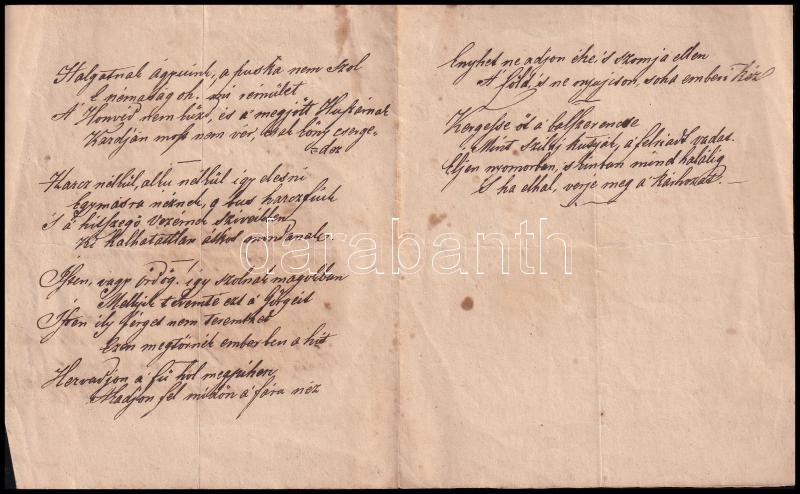 Halgatnak ágyuink, a puska nem szol
E nemaság oh szü rémület
A Honvéd nem küzd, és a megjött Huszárnak
Kardján most nem vér, csak köny cserge-
=dez
Harcz nélkül, alku nélkül igy elesni
Egymásra néznek, a bus harczfiak
S a hitszegö vezérnek szivetlen
Ki halhatatlan átkot mondanak
Isten, vagy ördög! igy szolnak magokban
Mellyik teremte ezt a Görgeit
Isten ily Görgeit nem teremthet
Ezen megtörnék emberben a hit
Hervadjon a fü hol megpihen
Akadjon fel midön a fára néz
Enyhet ne adjon éhe, s szomja ellen
A föld, is ne nyujcson, soha emberi kéz
Kergesse öt a balszerencse
Mint szilaj kutyák, a felriadt vadat.
Éljen nyomorban, s kinban mind halálig
S ha elhal, verje meg a kárhozat.
darabanth